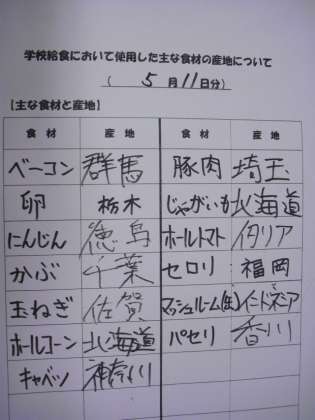 学校給食において使用した主な食材の産地について
( 5月11日分)
【主な食材と産地】
食材 産地 食材 産地
ベーコン 群馬 豚肉 埼玉
卵 栃木 じゃがいも 北海道
にんじん 徳島 ホールトマト イタリア
かぶ 千葉 セロリ 福岡
玉ねぎ 佐賀 マッシュルーム(缶) インドネシア
ホールコーン 北海道 パセリ 香川
キャベツ 神奈川